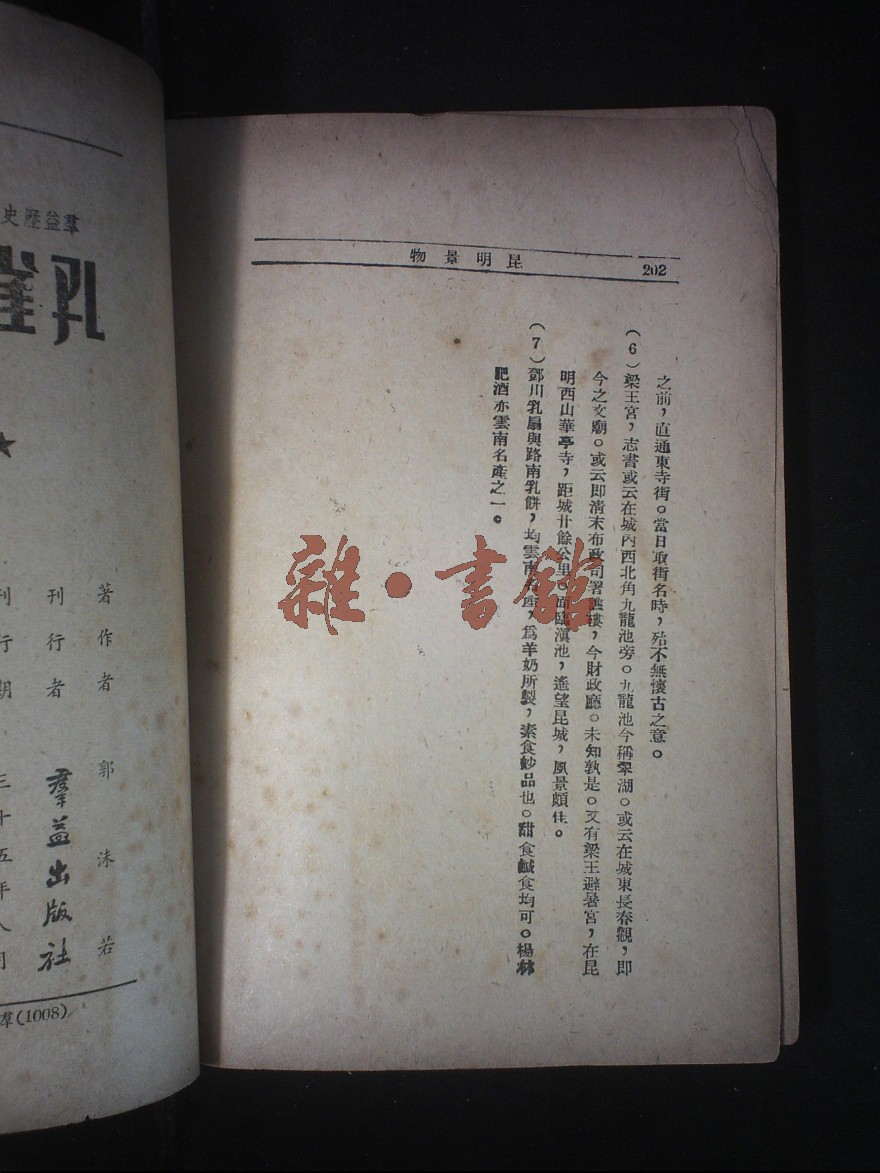 202
昆明景物
之前，直通東寺街。當日取街名時，殆不無懷古之意。
（6）梁王宮，志書或云在城內西北角九龍池旁。九龍池今稱翠湖。或云在城東長春觀，即
今之文廟。或云即清末布政司署譙樓，今財政廳。未知孰是。又有梁王避暑宮，在昆
明西山華亭寺，距城廿餘公里。面臨滇池，遙望昆城，風景頗佳。
（7）鄧川乳扇與路南乳餅，均雲南名產，為羊奶所製，素食妙品也。甜食鹹食均可。楊林
肥酒亦雲南名產之一。
雜·書館
羣益歷史
孔雀
★
著作者 郭沫若
刊行者 羣益出版社
刊行期 三十五年八月
羣(1008)